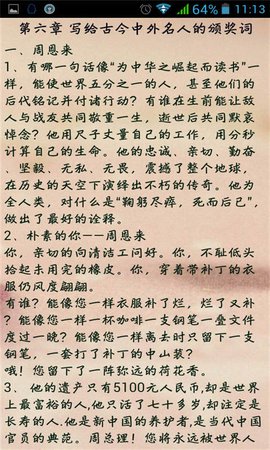 64% 11:13
第六章 写给古今中外名人的颁奖词
一、周恩来
1、有哪一句话像“为中华之崛起而读书”一
样，能使世界五分之一的人，甚至他们的
后代铭记并付诸行动？有谁在生前能让敌
人与战友共同敬重一生，逝世后共同默哀
悼念？他用尺子丈量自己的工作，用分秒
计算自己的生命。他的忠诚、亲切、勤奋
、坚毅、无私、无畏，震撼了整个地球，
在历史的天空下演绎出不朽的传奇。他为
全人类，对什么是“鞠躬尽瘁，死而后已”，
做出了最好的诠释。
2、朴素的你——周恩来
你，亲切的向清洁工问好。你，不耻低头
拾起未用完的橡皮。你，穿着带补丁的衣
服仍风度翩翩。
有谁？能像您一样衣服补了烂，烂了又补
？能像您一样一杯咖啡一支钢笔一叠文件
度过一晚？能像您一样离去时只留下一支
钢笔，一套打了补丁的中山装？
哦！您留下了一阵弥远的荷花香。
3、 他的遗产只有5100元人民币,却是世界
上最富裕的人,他只活了七十多岁,却注定是
长寿的人,他是新中国的养护者,是当代中国
官员的典范。周总理！您将永远被世界人